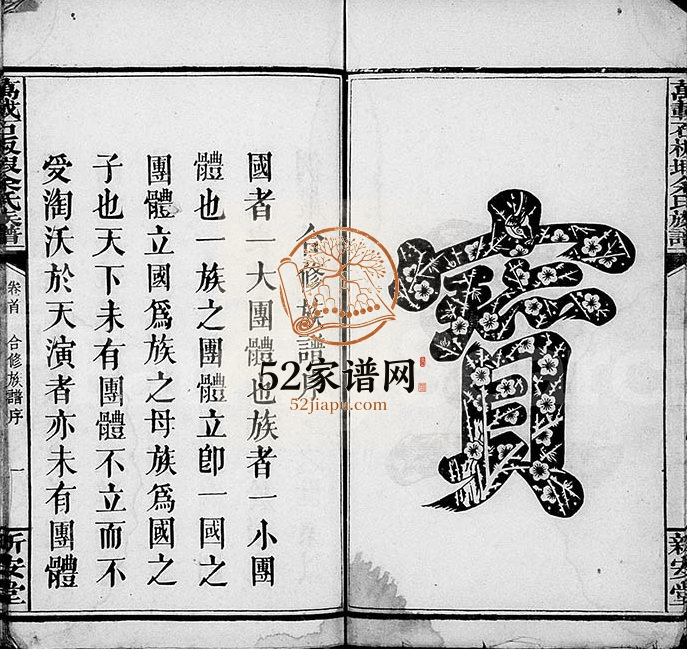 萬載石板垠余氏族譜
寶
新安堂
合修族譜序
國者一大團體也族者一小團
體也一族之團體立卽一國之
團體立國爲族之母族爲國之
子也天下未有團體不立而不
受淘沃於天演者亦未有團體
萬載石板垠余氏族譜
卷首 合修族譜序 一
新安堂
52家谱网
52jiapu.com